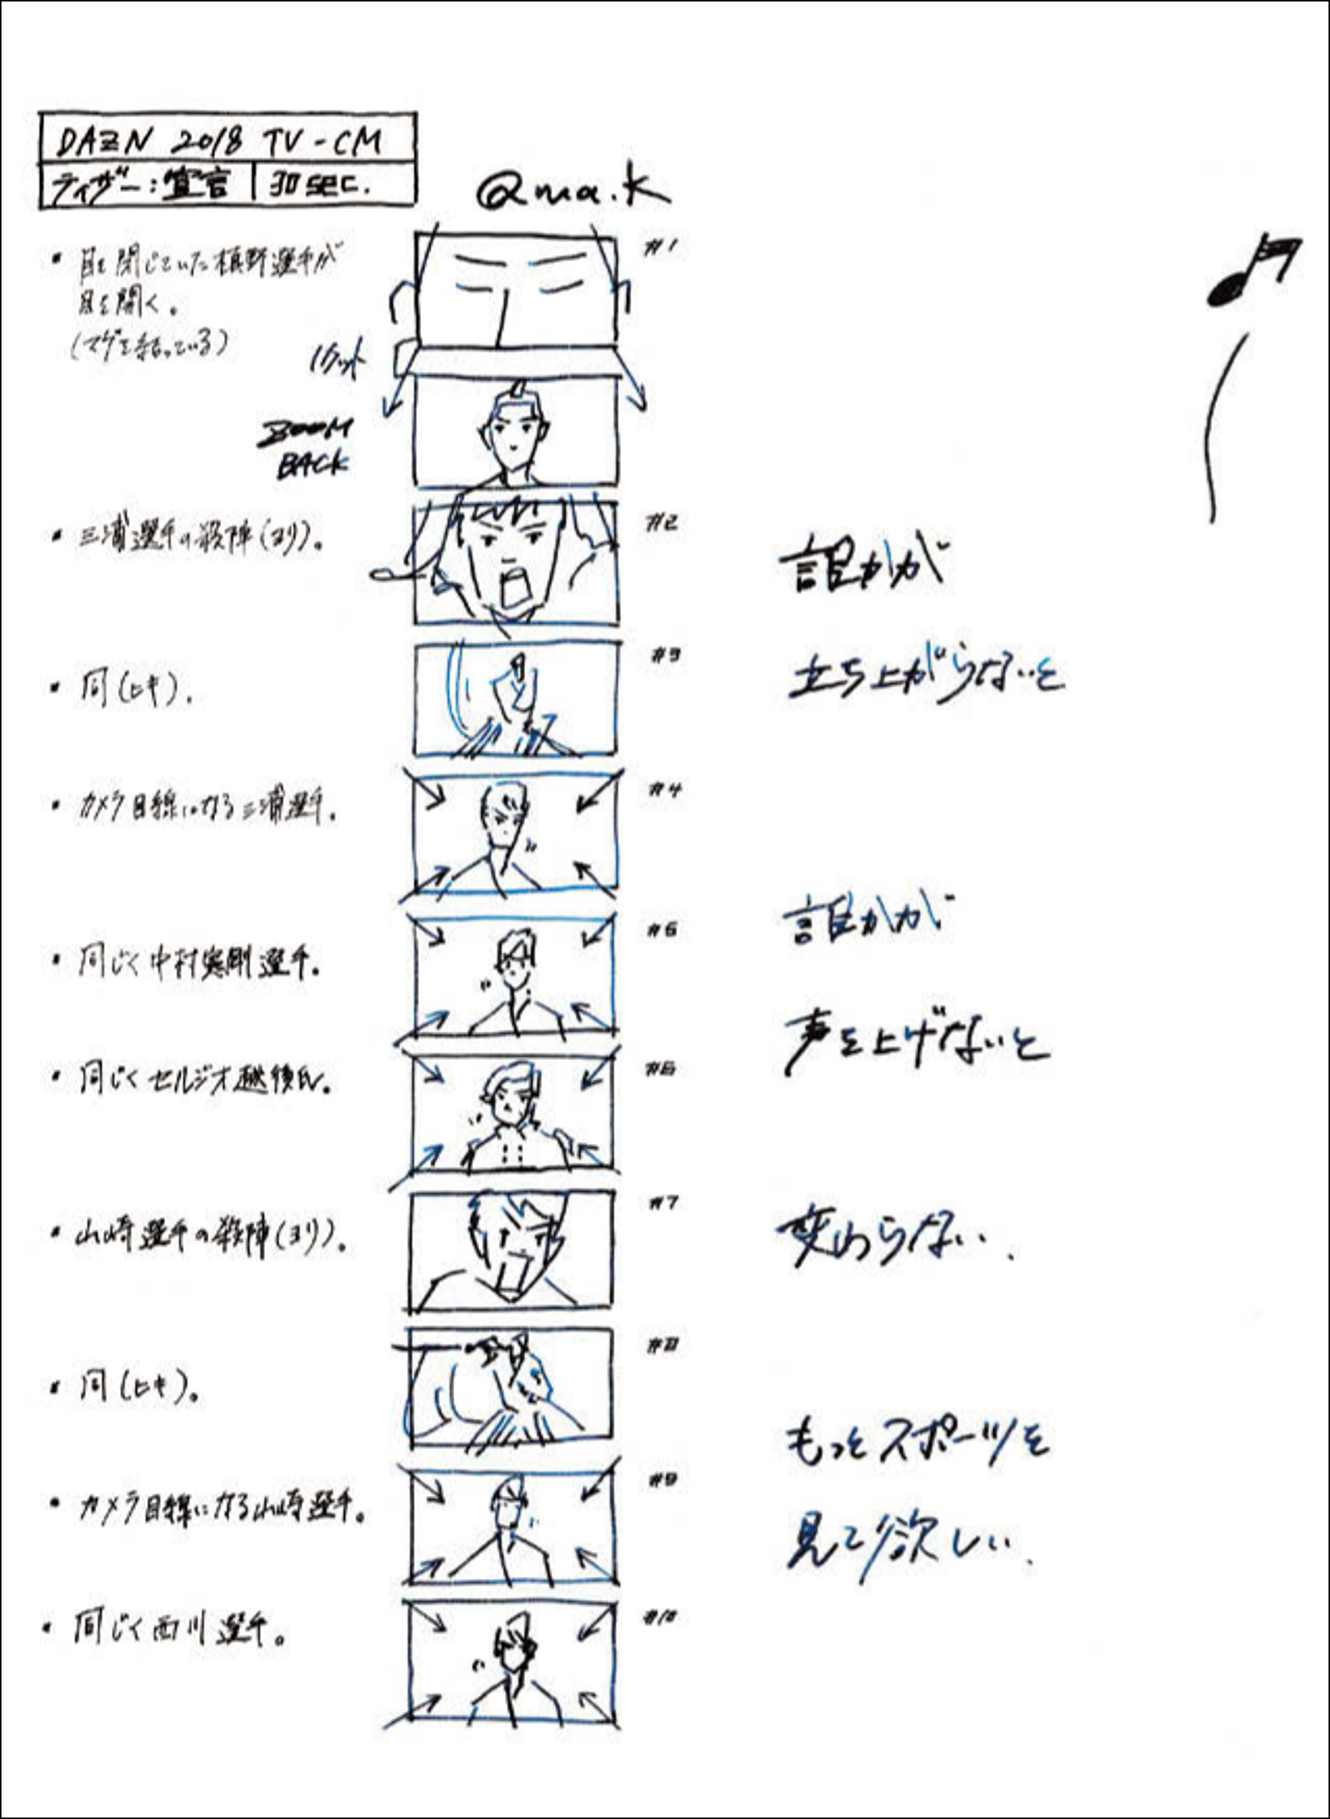 DAZN 2018 TV-CM
ティザー:宣言
30 sec.
@ma.k
・目を閉じていた槙野選手が
目を開く。
(マゲを結っている)
#1
ZOOM
BACK
・三浦選手の殺陣(ヨリ)。
#2
誰かが
・同(ヒキ).
#3
立ち上がらないと
・カメラ目線になる三浦選手。
#4
・同じく中村憲剛選手。
#5
誰かが
声を上げないと
・同じくセルジオ越後氏。
#6
・山崎選手の殺陣(ヨリ)。
#7
変わらない.
・同(ヒキ)。
#8
もっとスポーツを
・カメラ目線になる山崎選手。
#9
見て欲しい.
・同じく西川選手。
#10